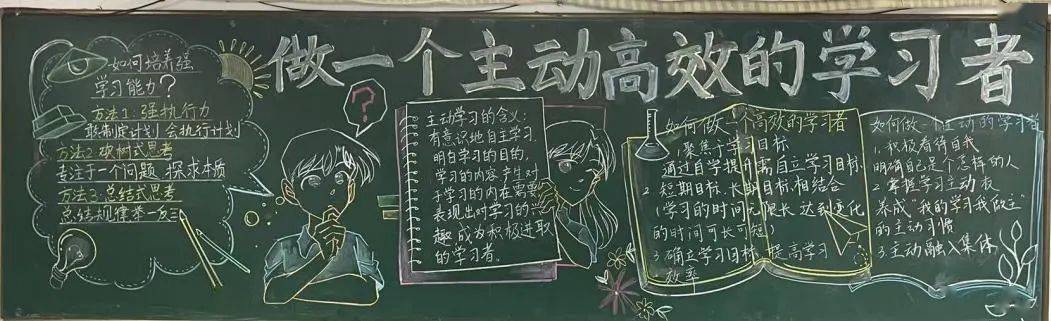 做一个主动高效的学习者
如何培养强
学习能力?
方法1:强执行力
敢制定计划 会执行计划
方法2:树式思考
专注于一个问题 探求本质
方法3:总结式思考
总结规律举一反三
?
主动学习的含义:
有意识地自主学习,
明白学习的目的,
学习的内容产生对
于学习的内在需要
表现出对学习的兴
趣成为积极进取
的学习者。
如何做一个高效的学习者
1.聚焦于学习目标
通过自学提 需自立学习目标,
2 短期目标、长 目标 相结合
(学习的时间无限长 达到变化
的时间可长可短)
3.确立学习目标 提高学习
效率
如何做一个主动的学习者
1.积极看待自我
明确自己是个怎样的人
2.掌握学习主动权
养成“我的学习我做主”
的主动习惯
3.主动融入集体